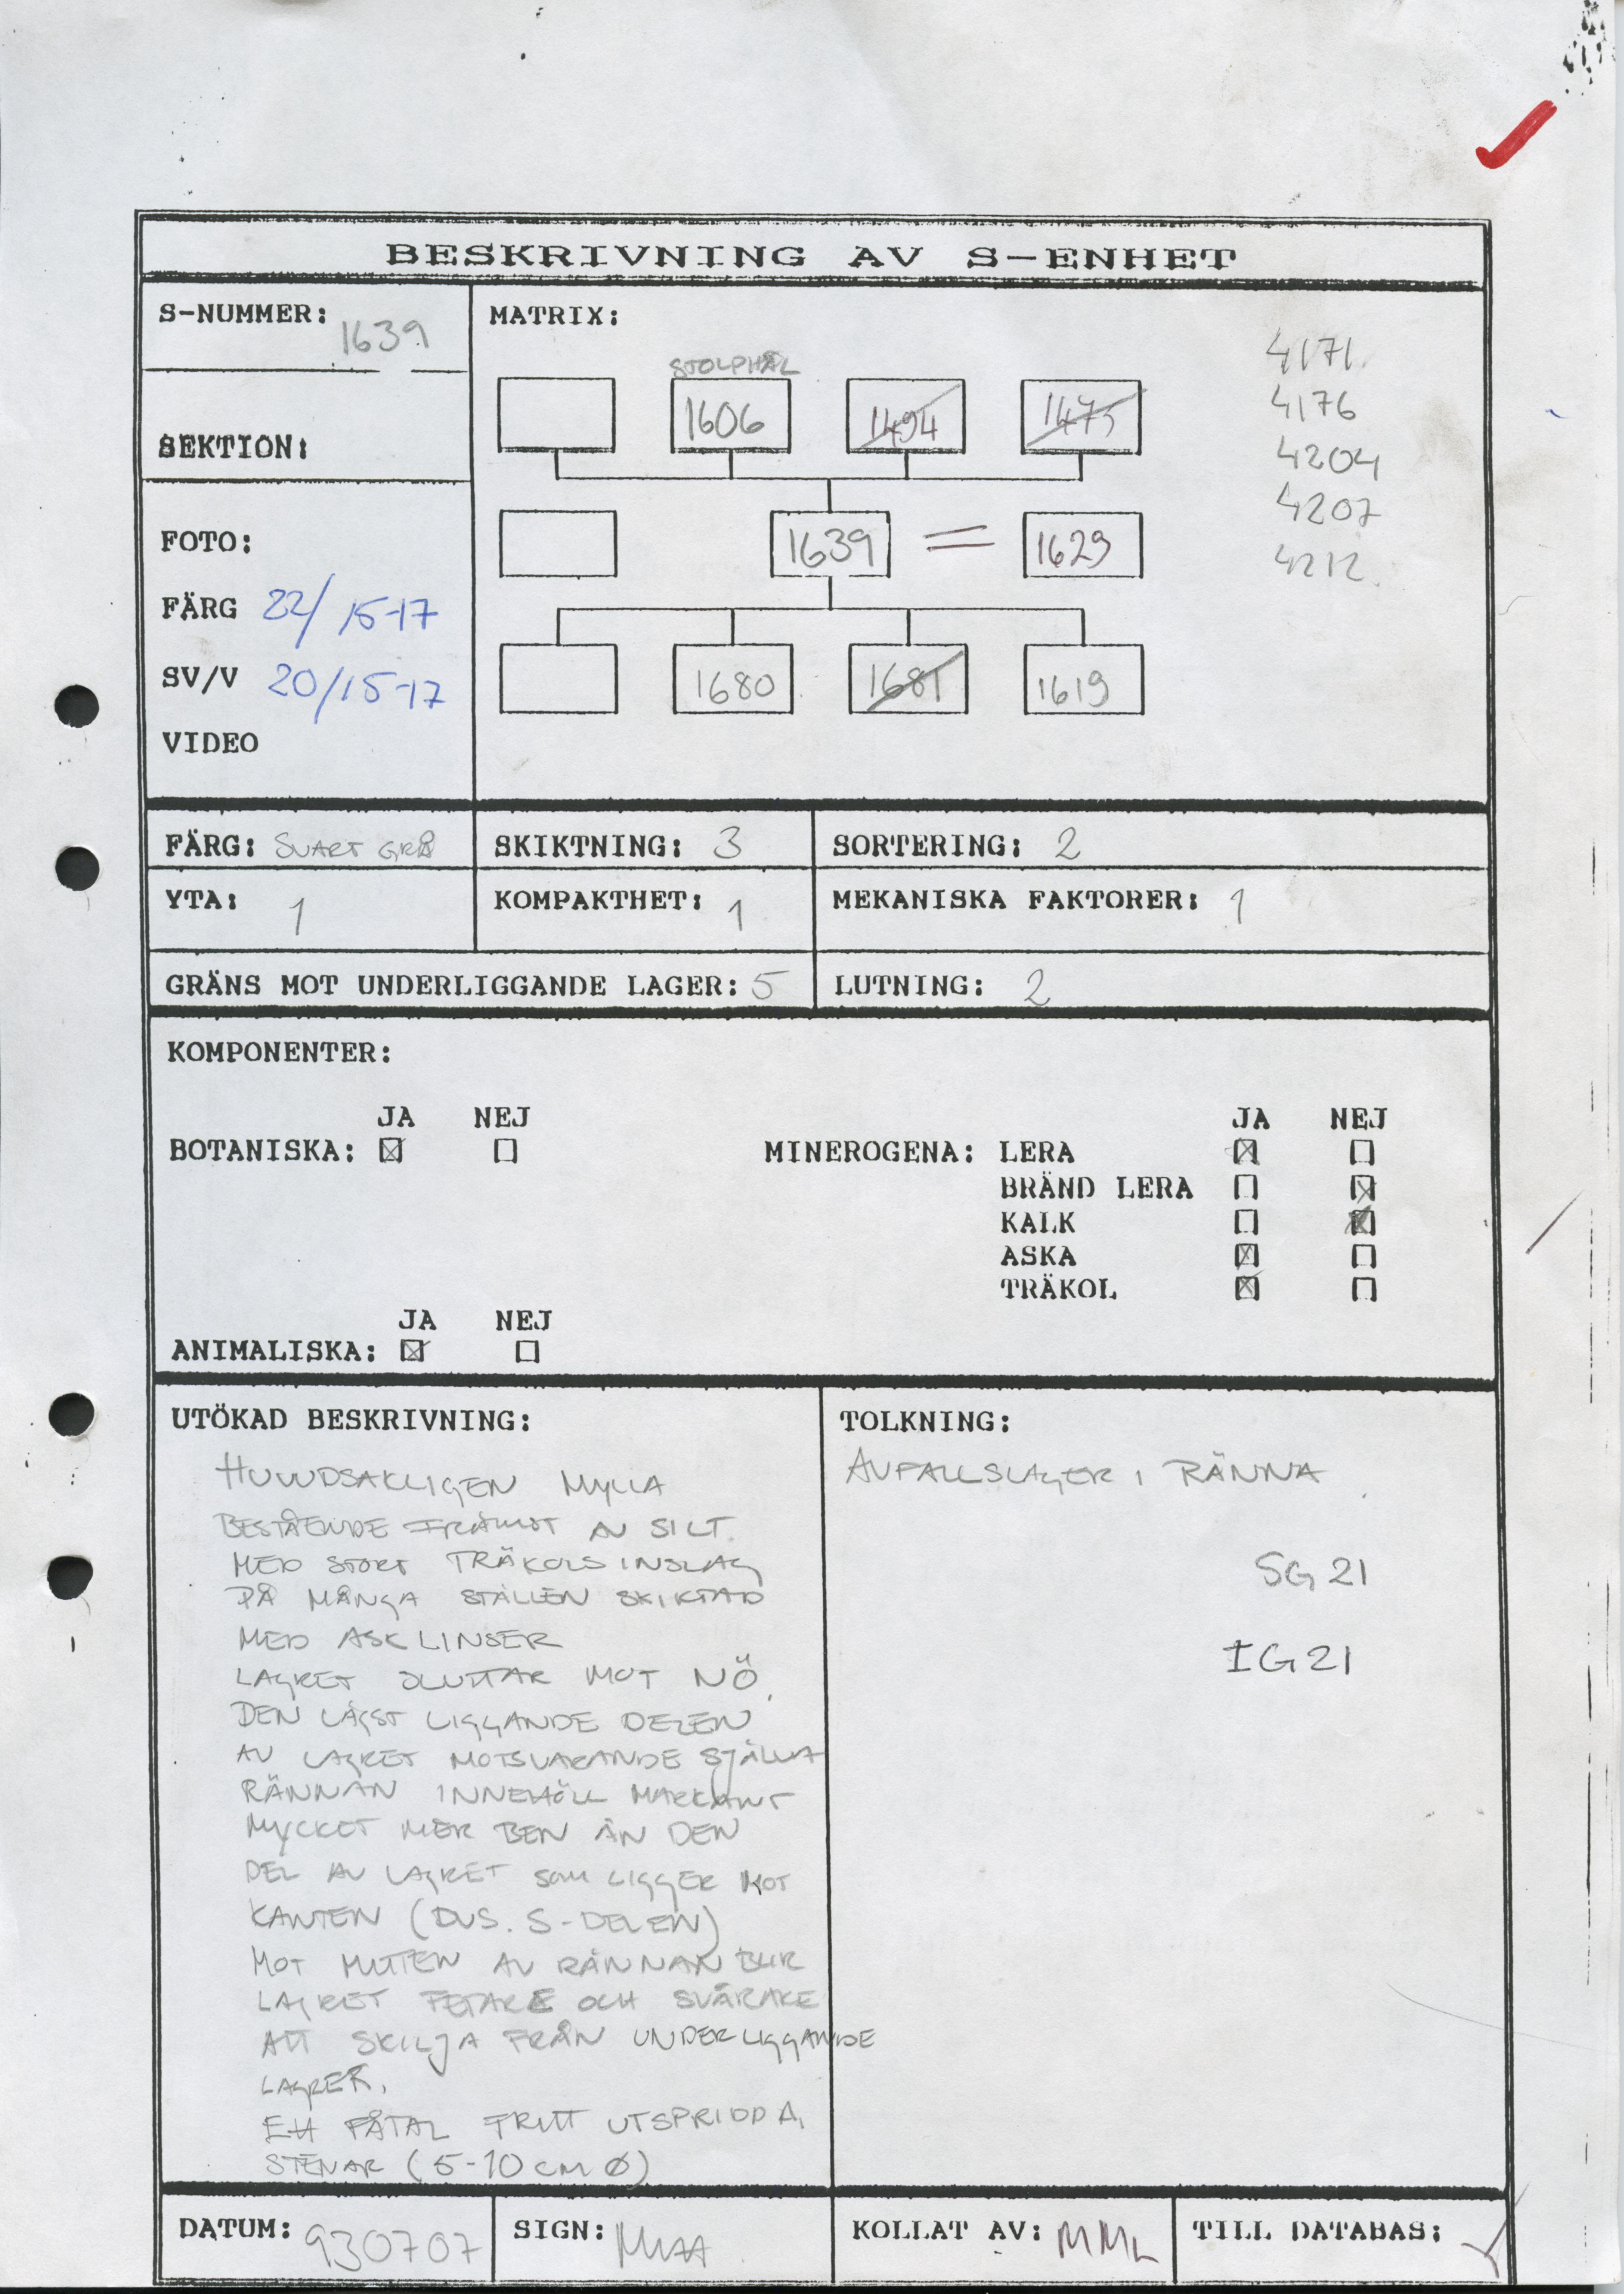 BESKRIVNING AV S-ENHET
S-NUMMER: 1639
SEKTION:
FOTO:
FÄRG 22/15-17
SV/V 20/15-17
VIDEO
MATRIX:
STOLPHÅL
1606 1494 1475
1639 = 1629
1680 1681 1619
4171.
4176
4204
4207
4212.
FÄRG: SVART GRÅ SKIKTNING: 3 SORTERING: 2
YTA: 1 KOMPAKTHET: 1 MEKANISKA FAKTORER: 1
GRÄNS MOT UNDERLIGGANDE LAGER: 5 LUTNING: 2
KOMPONENTER:
JA NEJ
BOTANISKA: ☒ ☐
JA NEJ
MINEROGENA: LERA ☒ ☐
BRÄND LERA ☐ ☒
KALK ☐ ☒
ASKA ☒ ☐
TRÄKOL ☒ ☐
JA NEJ
ANIMALISKA: ☒ ☐
UTÖKAD BESKRIVNING:
HUVUDSAKLIGEN MYLLA
BESTÅENDE FRÄMST AV SILT.
MED STORT TRÄKOLSINSLAG
PÅ MÅNGA STÄLLEN SKIKTAD
MED ASKLINSER
LAGRET SLUTTAR MOT NÖ.
DEN LÄGST LIGGANDE DELEN
AV LAGRET MOTSVARANDE SJÄLVA
RÄNNAN INNEHÖLL MARKANT
MYCKET MER BEN ÄN DEN
DEL AV LAGRET SOM LIGGER MOT
KANTEN (DVS. S-DELEN)
MOT MITTEN AV RÄNNAN BLIR
LAGRET FETARE OCH SVÅRARE
ATT SKILJA FRÅN UNDERLIGGANDE
LAGRER.
ETT FÅTAL FRITT UTSPRIDDA,
STENAR (5-10 CM Ø)
TOLKNING:
AVFALLSLAGER I RÄNNA
SG 21
IG 21
DATUM: 930707 SIGN: KOLLAT AV: MML TILL DATABAS: